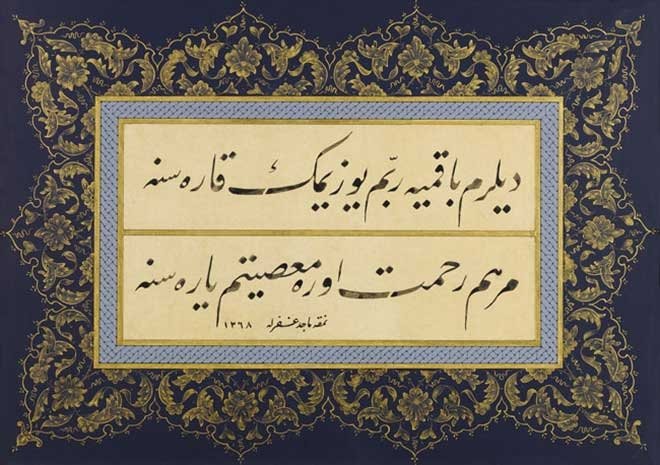 ديلرم باقميه ربّم يوزيمك قاره سنه
مرهم رحمت اوره معصيتم ياره سنه
نمقه ماجد غفرله ١٣٦٨